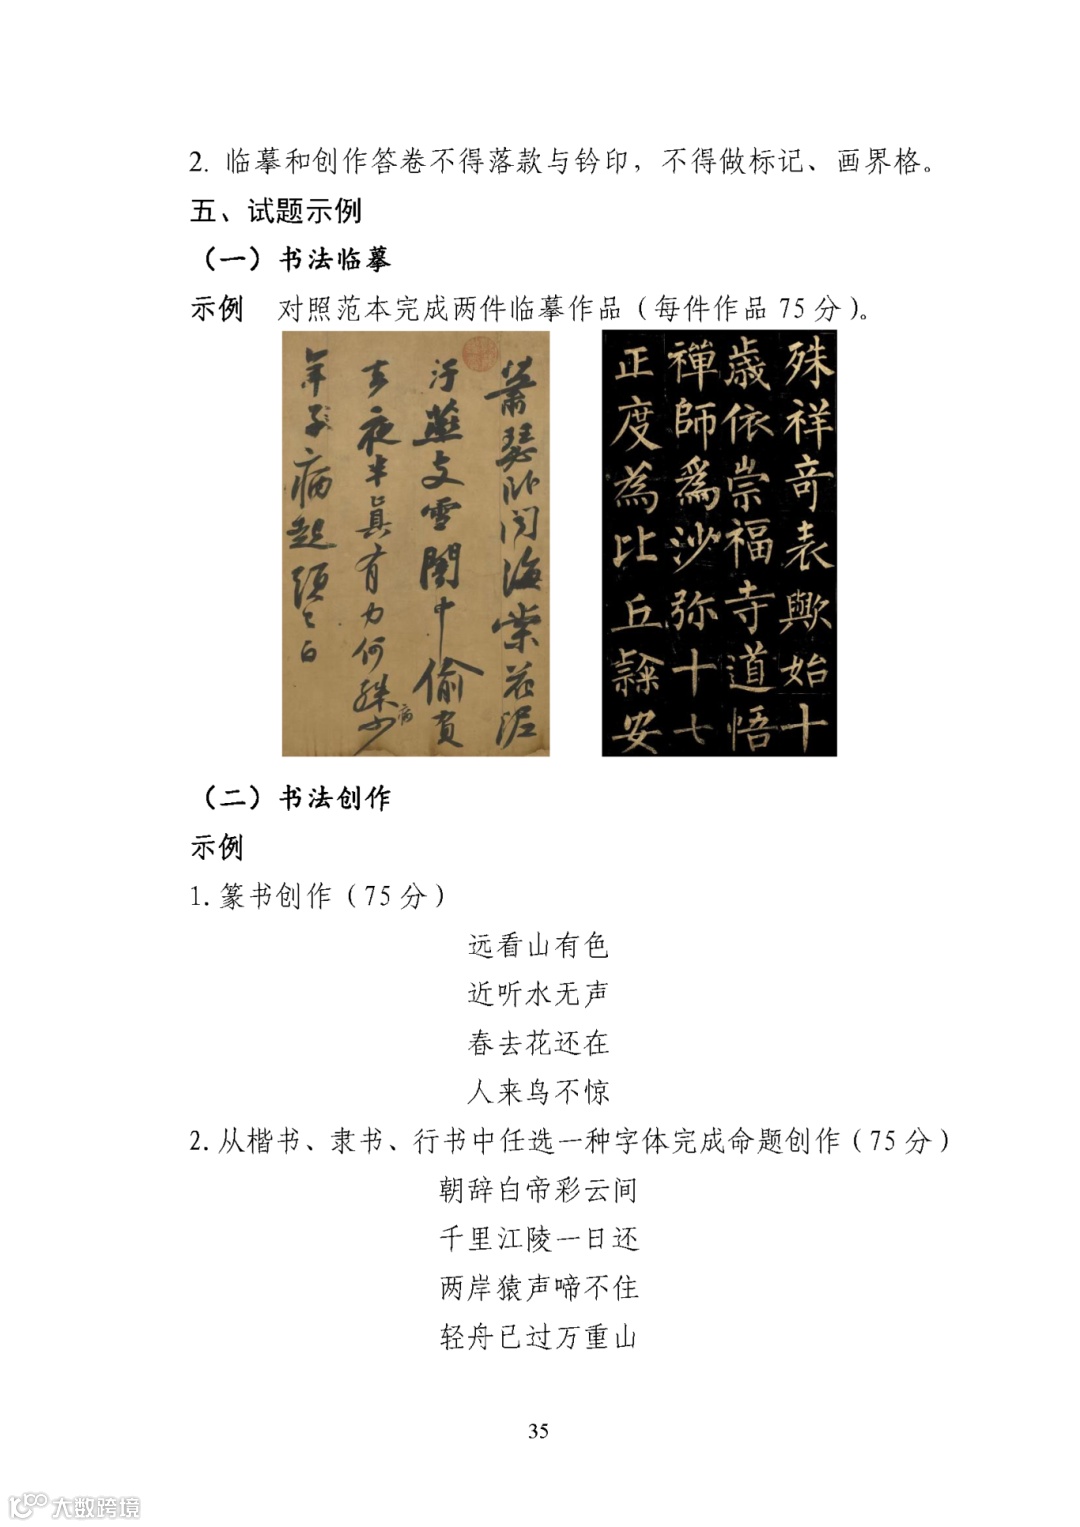 2. 临摹和创作答卷不得落款与钤印，不得做标记、画界格。
五、试题示例
（一）书法临摹
示例 对照范本完成两件临摹作品（每件作品 75 分）。
蕭瑟卧聞海棠花泥
汙燕支雪闇中偷負
去夜半真有力何殊少
病
年子病起頭已白
殊祥奇表歟始十
歲依崇福寺道悟
禪師爲沙弥十七
正度為比丘隸安
（二）书法创作
示例
1. 篆书创作（75 分）
远看山有色
近听水无声
春去花还在
人来鸟不惊
2. 从楷书、隶书、行书中任选一种字体完成命题创作（75 分）
朝辞白帝彩云间
千里江陵一日还
两岸猿声啼不住
轻舟已过万重山
35
大数跨境